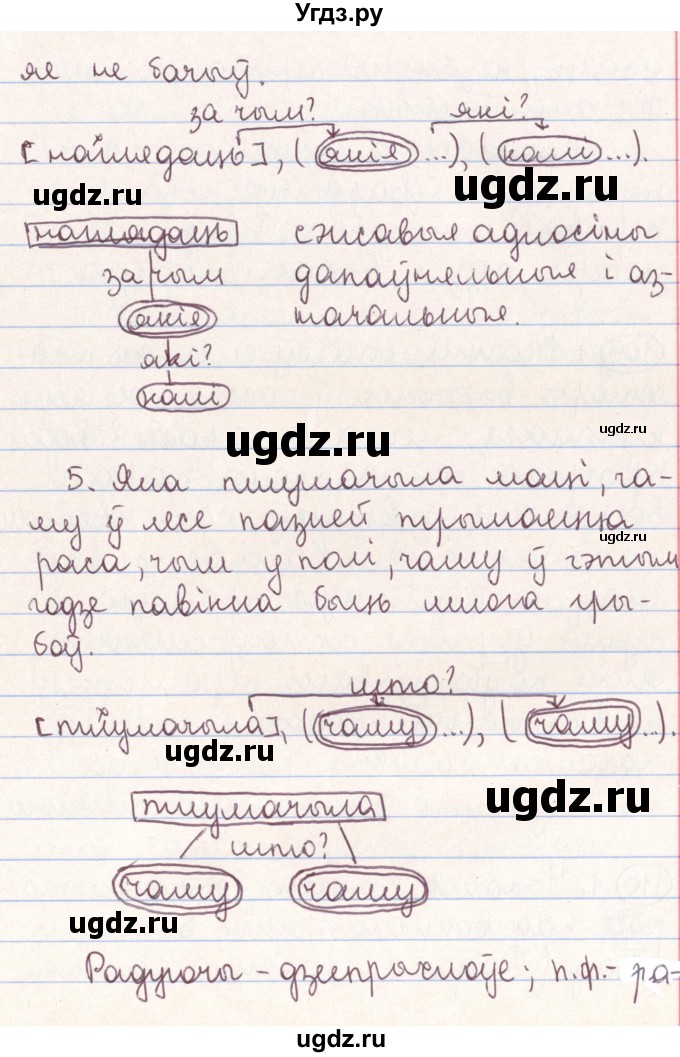 Угдз.ру
яе не бачыў.
за чым? які?
[наглядаць], (якія ...), (калі ...).
ugdz.ru ugdz.ru
наглядаць сэнсавыя адносіны
за чым дапаўняльныя і аз-
якія начальныя.
які?
калі
ugdz.ru
ugdz.ru
5. Яна тлумачыла маці, ча-
му ў лесе пазней трымаецца
ugdz.ru
раса, чым у полі, чаму ў гэтым
годзе павінна быць многа гры-
боў.
што?
[тлумачыла], (чаму ...), (чаму ...).
ugdz.ru
ugdz.ru
тлумачыла
што?
чаму чаму
ugdz.ru
Радуючы - дзеепрыслоўе; п.ф.- ра-
ugdz.ru